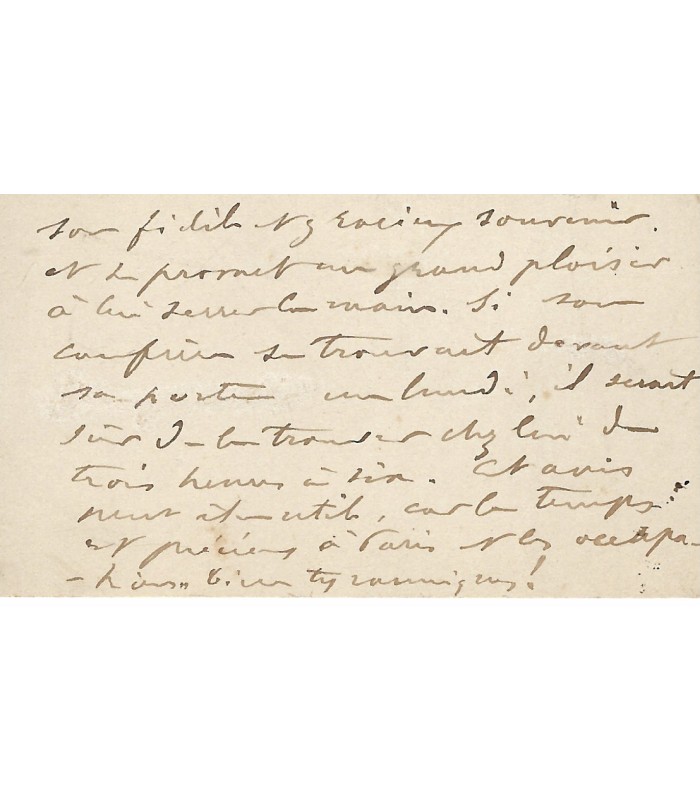 son fidèle et gracieux souvenir.
et se promet un grand plaisir
à lui serrer la main. Si son
confrère se trouvait devant
sa porte un lundi, il serait
sûr de le trouver chez lui de
trois heures à six. Cet avis
peut être utile, car le temps
est précieux à Paris et les occupa-
-tions bien tyranniques!